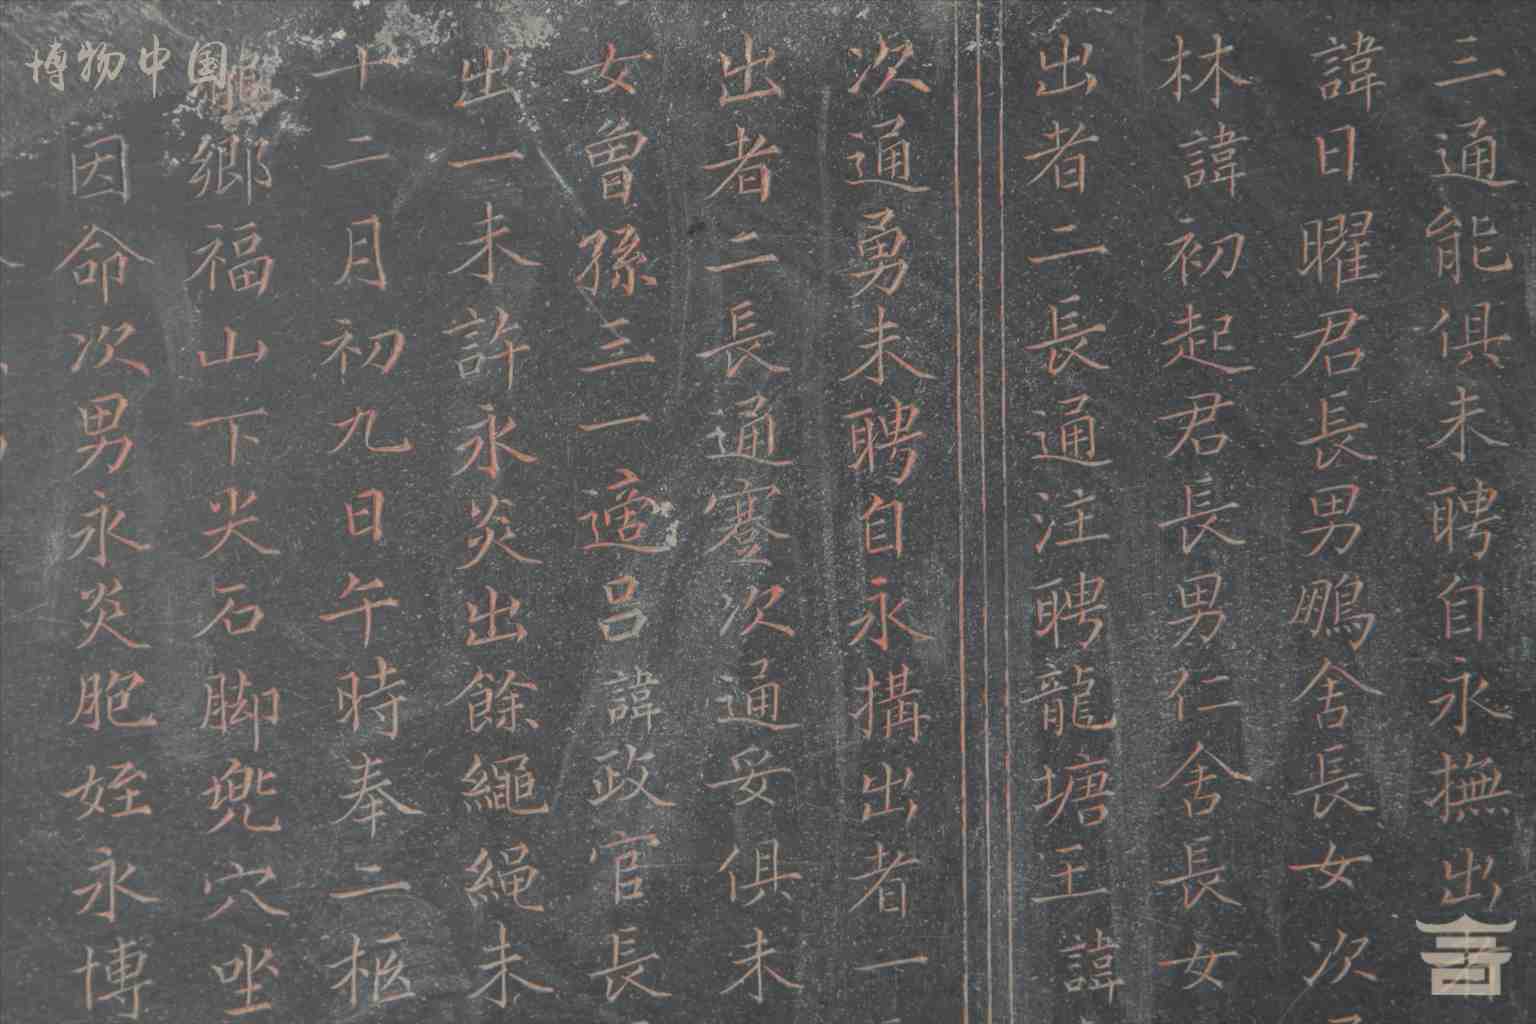 三通能俱未聘自永撫出者
諱日曜君長男鵬舍長女次
林諱初起君長男仁舍長女
出者二長通注聘龍塘王諱
次通勇未聘自永搆出者一
出者二長通蹇次通妥俱未
女曾孫三一適呂諱政官長
出一未許永炎出餘繩繩未
十二月初九日午時奉二柩
鄉福山下尖石脚兜穴坐
因命次男永炎胞姪永博
博物中国